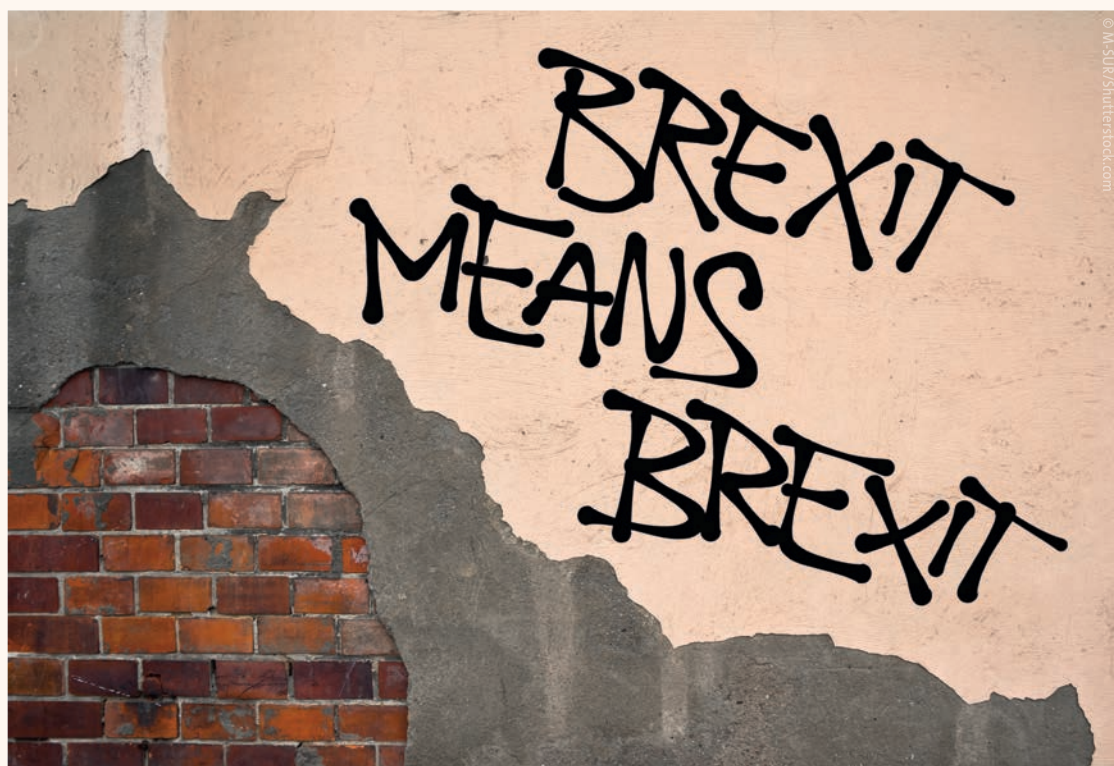 BREXiT
MEANS
BREXiT
© M-SUR/Shutterstock.com